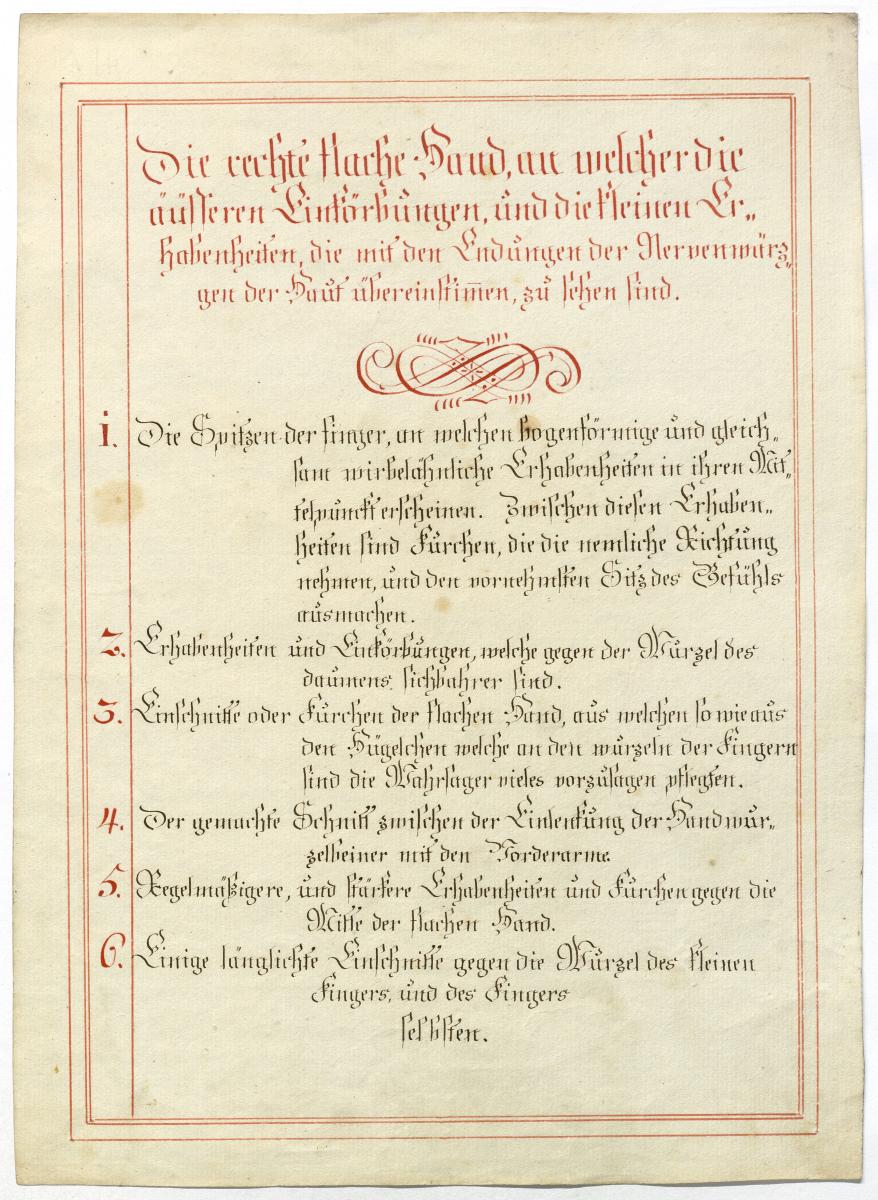 Die rechte flache Hand, an welcher die
äüsseren Einkörbüngen, und die kleinen Er„
habenheiten, die mit den Endüngen der Nervenwärz„
gen der Haut übereinstim̅en, zü sehen sind.
1. Die Spitzen der finger, an welchen bogenförmige und gleich„
sam wirbelähnliche Erhabenheiten in ihren Mit„
telpunckt erscheinen. Zwischen diesen Erhaben„
heiten sind Fürchen, die die nemliche Richtüng
nehmen, und den vornehmsten Sitz des Gefühls
ausmachen.
2. Erhabenheiten und Einkörbüngen, welche gegen der Würzel des
daumens sichbahrer sind.
3. Einschnitte oder Fürchen der flachen Hand, aus welchen so wie aus
den Hügelchen welche an den würzeln der Fingern
sind die Wahrsager vieles vorzüsagen pflegten.
4. Der gemachte Schnitt zwischen der Einlenküng der Handwür„
zelbeiner mit den Vorderarme.
5. Regelmäßigere, und stärkere Erhabenheiten und Fürchen gegen die
Mitte der flachen Hand.
6. Einige länglichte Einschnitte gegen die Würzel des kleinen
Fingers, und des Fingers
selbsten.